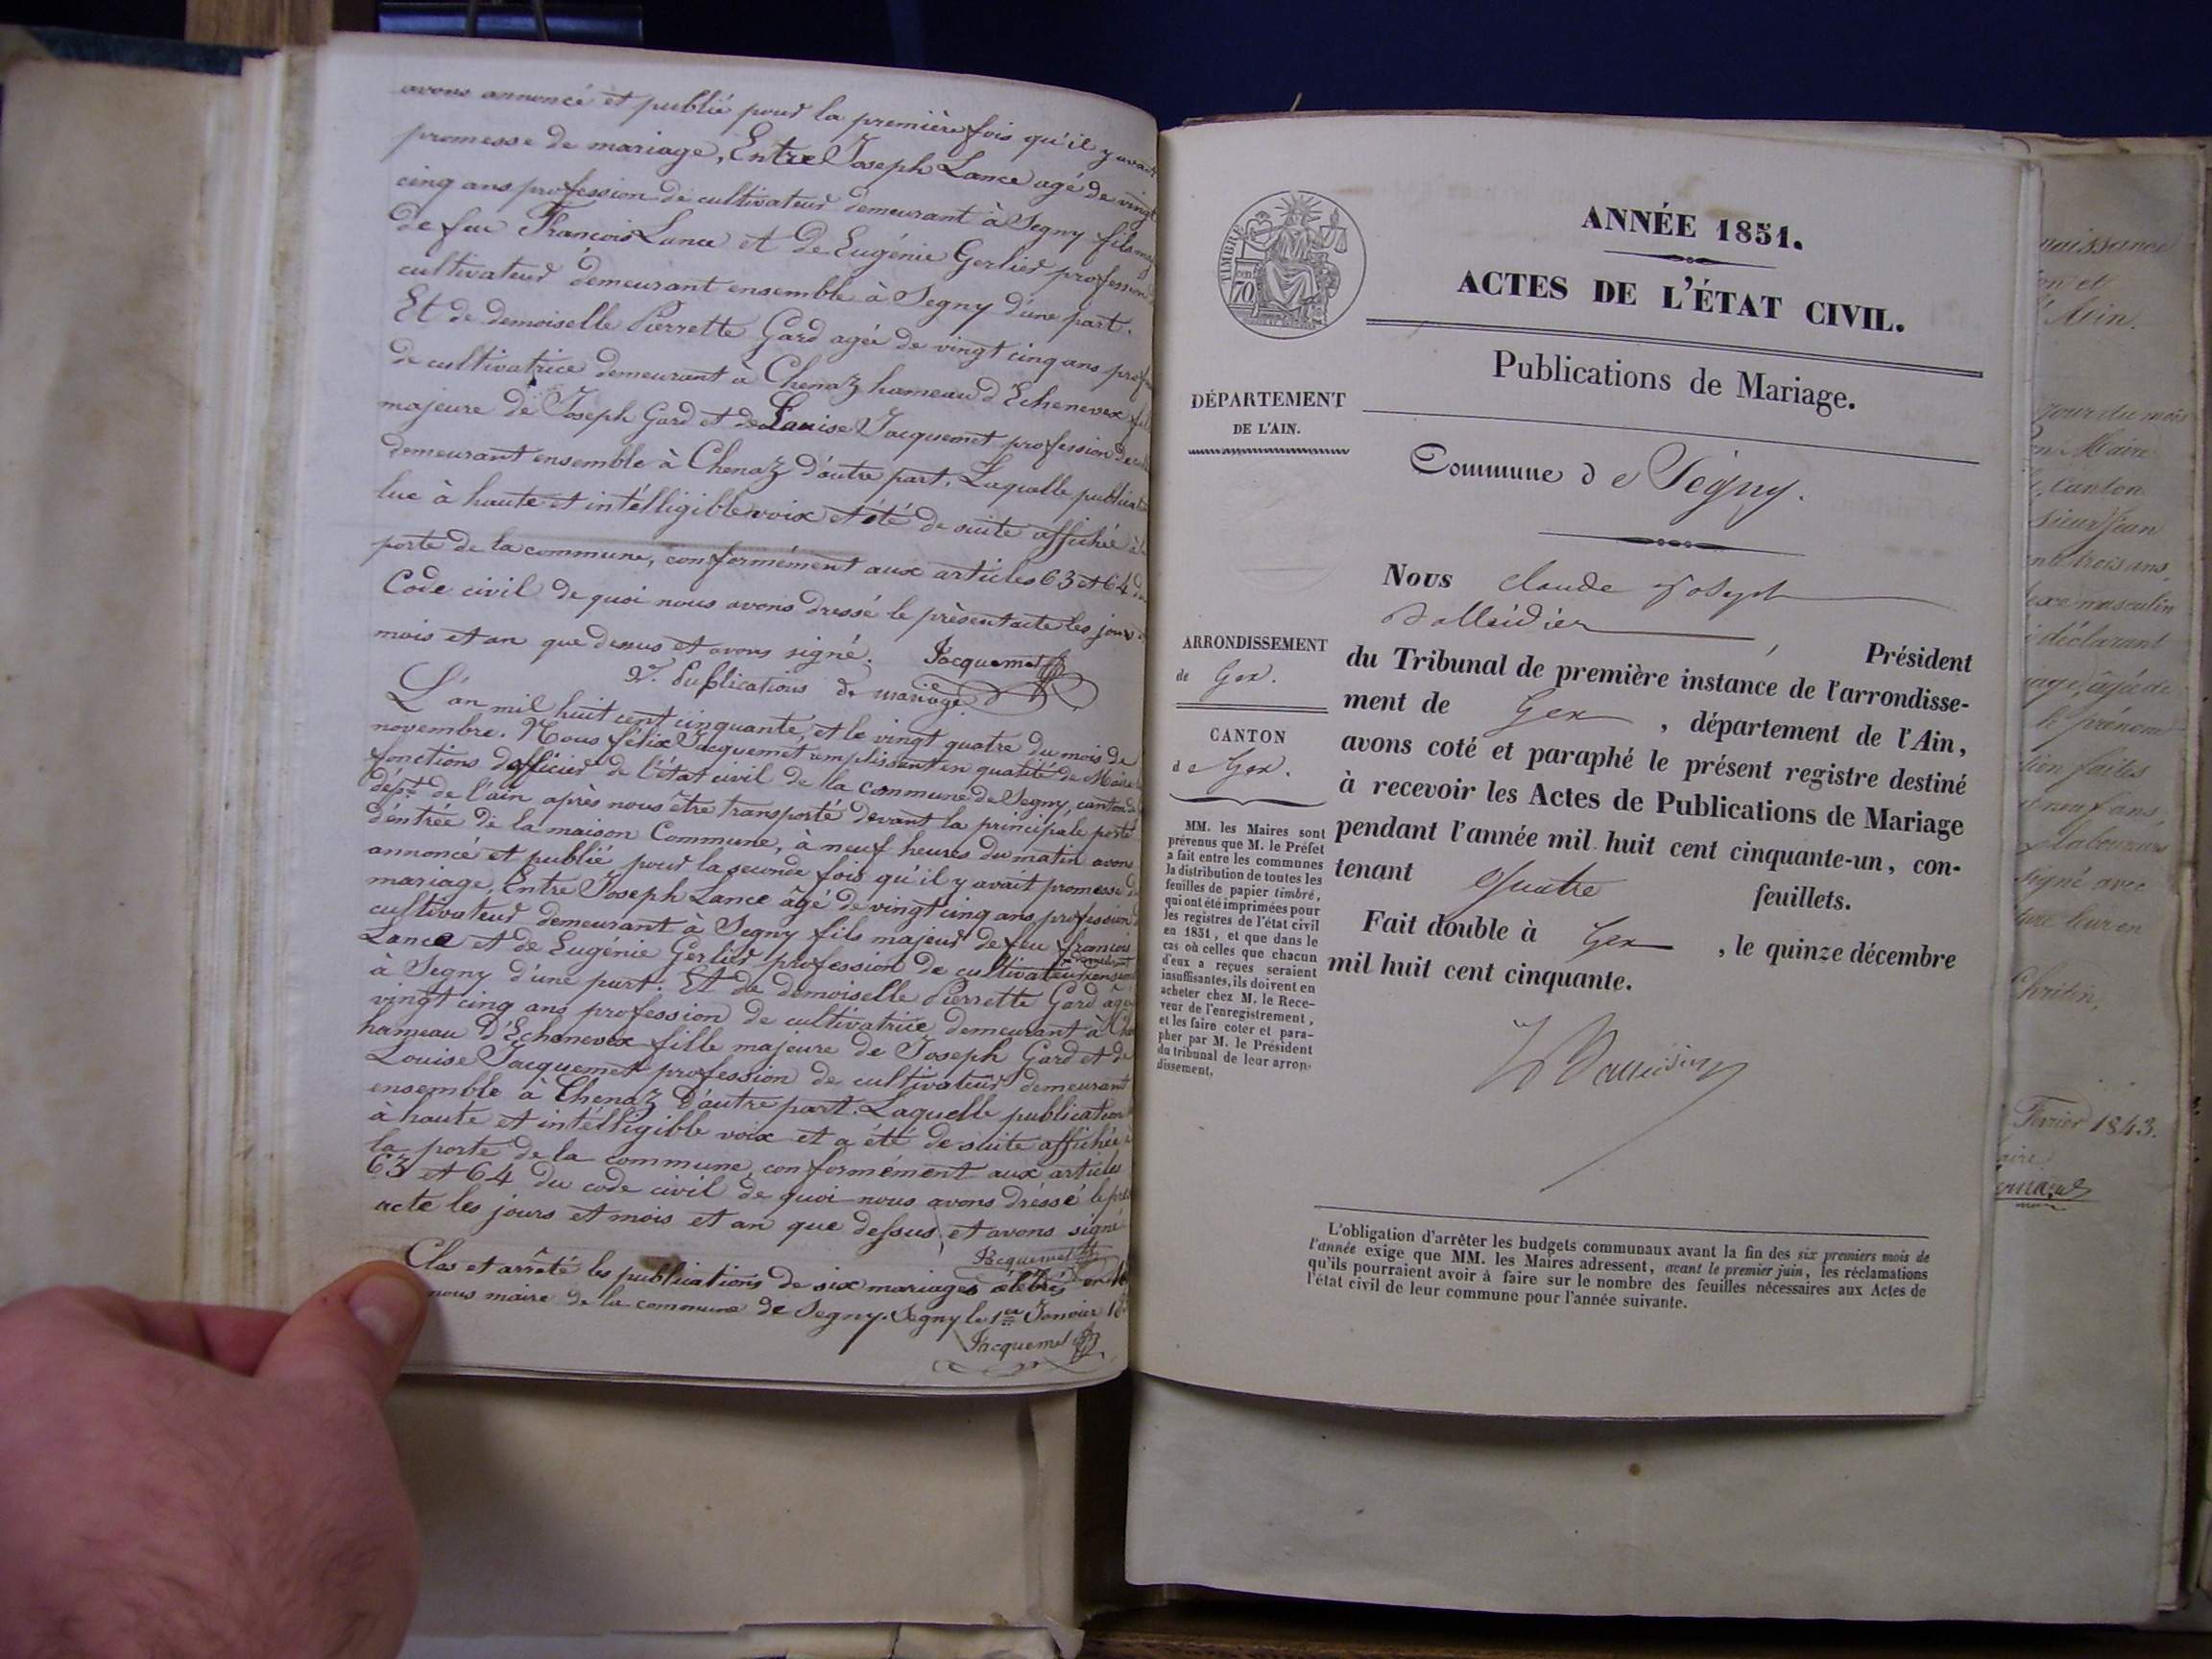 avons annoncé et publié pour la première fois qu'il y avait
promesse de mariage, Entre Joseph Lance agé de vingt
cinq ans profession de cultivateur demeurant à Segny fils maj
de feu François Lance et de Eugénie Gerlier profession
cultivateur demeurant ensemble à Segny d'une part.
Et de demoiselle Pierrette Gard agée de vingt cinq ans prof
de cultivatrice demeurant à Chenaz hameau d'Echenevex fil
majeure de Joseph Gard et de Louise Jacquemet profession de
demeurant ensemble à Chenaz d'autre part, Laquelle publicat
lue à haute et intélligible voix et été de suite affichée à
porte de la commune, conformément aux articles 63 et 64 du
Code civil de quoi nous avons dressé le présent acte les jour
mois et an que dessus et avons signé. Jacquemet
2e. Publications de mariage
L'an mil huit cent cinquante, et le vingt quatre du mois de
novembre. Nous félix Jacquemet remplissant en qualité de Maire
fonctions d'officier de l'état civil de la commune de Segny, canton de
dépt de l'ain, après nous être transporté devant la principale porte
d'entrée de la maison Commune, à neuf heures du matin avons
annoncé et publié pour la seconde fois qu'il y avait promesse d
mariage, Entre Joseph Lance âgé de vingt cinq ans profession
cultivateur demeurant à Segny fils majeur de feu françois
Lance et de Eugénie Gerlier profession de cultivateur demeurant
à Segny d'une part. Et de demoiselle Pierrette Gard âgé
vingt cinq ans profession de cultivatrice demeurant à Che
hameau D'Echenevex fille majeure de Joseph Gard et de
Louise Jacquemet profession de cultivateur demeurant
ensemble à Chenaz d'autre part. Laquelle publication
à haute et intélligible voix et a été de suite affichée à
la porte de la commune, conformément aux articles
63 et 64 du code civil de quoi nous avons dréssé le pré
acte les jours et mois et an que dessus, et avons signé
Jacquemet
Clos et arrêté les publications de six mariages célébrés en 18
nous maire de la commune de Segny. Segny le 1er Janvier 18
Jacquemet
TIMBRE
70
ANNÉE 1851.
ACTES DE L'ÉTAT CIVIL.
Publications de Mariage.
DÉPARTEMENT
DE L'AIN.
Commune de Ségny.
Nous Claude Joseph
, Président
ARRONDISSEMENT
de Gex.
CANTON
de Gex.
du Tribunal de première instance de l'arrondisse-
ment de Gex , département de l'Ain,
avons coté et paraphé le présent registre destiné
à recevoir les Actes de Publications de Mariage
pendant l'année mil huit cent cinquante-un, con-
tenant Quatre feuillets.
Fait double à Gex , le quinze décembre
mil huit cent cinquante.
MM. les Maires sont
prévenus que M. le Préfet
a fait entre les communes
la distribution de toutes les
feuilles de papier timbré,
qui ont été imprimées pour
les registres de l'état civil
en 1851, et que dans le
cas où celles que chacun
d'eux a reçues seraient
insuffisantes, ils doivent en
acheter chez M. le Rece-
veur de l'enregistrement,
et les faire coter et para-
pher par M. le Président
du tribunal de leur arron-
dissement.
L'obligation d'arrêter les budgets communaux avant la fin des six premiers mois de
l'année exige que MM. les Maires adressent, avant le premier juin, les réclamations
qu'ils pourraient avoir à faire sur le nombre des feuilles nécessaires aux Actes de
l'état civil de leur commune pour l'année suivante.
naissance
on et
l'Ain.
jour du mois
Maire
Canton
sieur Jean
trois ans,
sexe masculin
déclarant
âgé de
le prénom
faites
neuf ans,
Laboureurs
signé avec
leur en
Février 1843.